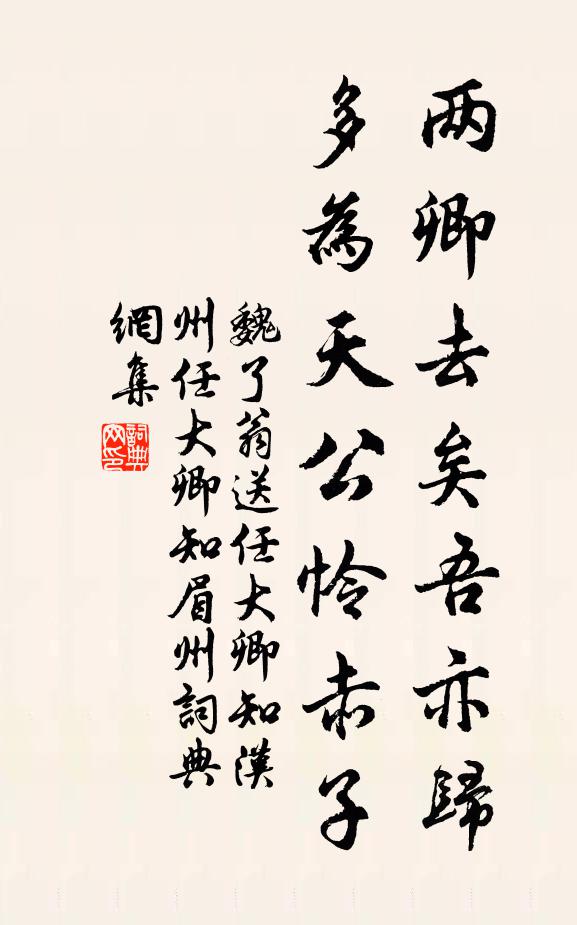 两卿去矣吾亦歸
多為天公怜赤子
魏了翁送任大卿知漢
州任大卿知眉州詞典
網集
詞典
网印